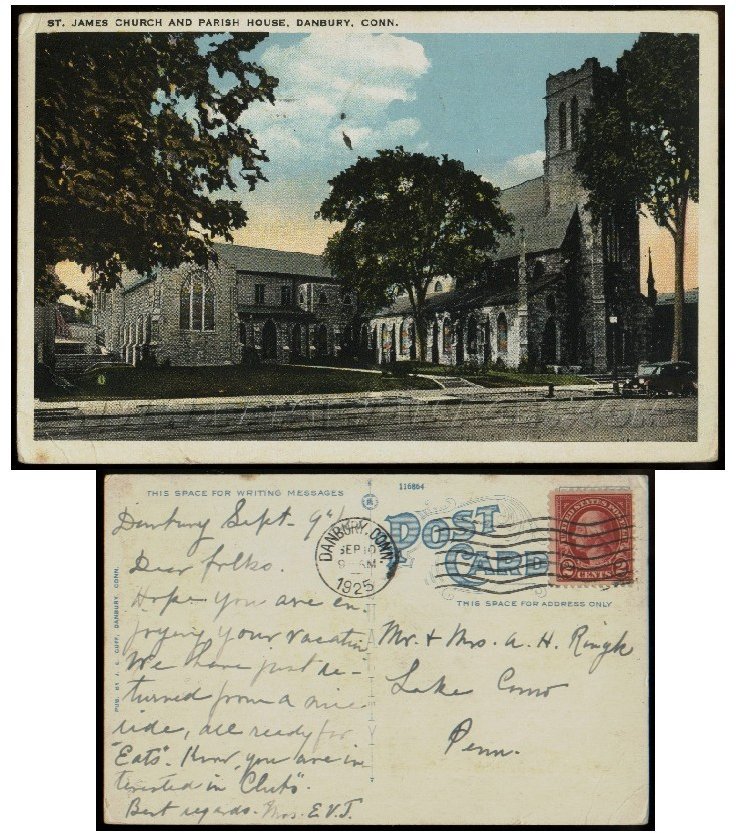 ST. JAMES CHURCH AND PARISH HOUSE, DANBURY, CONN.
THIS SPACE FOR WRITING MESSAGES
116864
POST
CARD
THIS SPACE FOR ADDRESS ONLY
DANBURY, CONN.
SEP 10
9 AM
1925
UNITED STATES POSTAGE
2 CENTS 2
PUB. BY J. C. GOFF, DANBURY, CONN.
Danbury Sept- 9th
Dear folks.
Hope you are en-
joying your vacation
We have just re-
turned from a nice
ride, all ready for
"Eats". Know you are in
terested in "Clubs".
Best regards. Mrs. E.V.J.
Mr. + Mrs. A. H.
Lake Como
Penn.